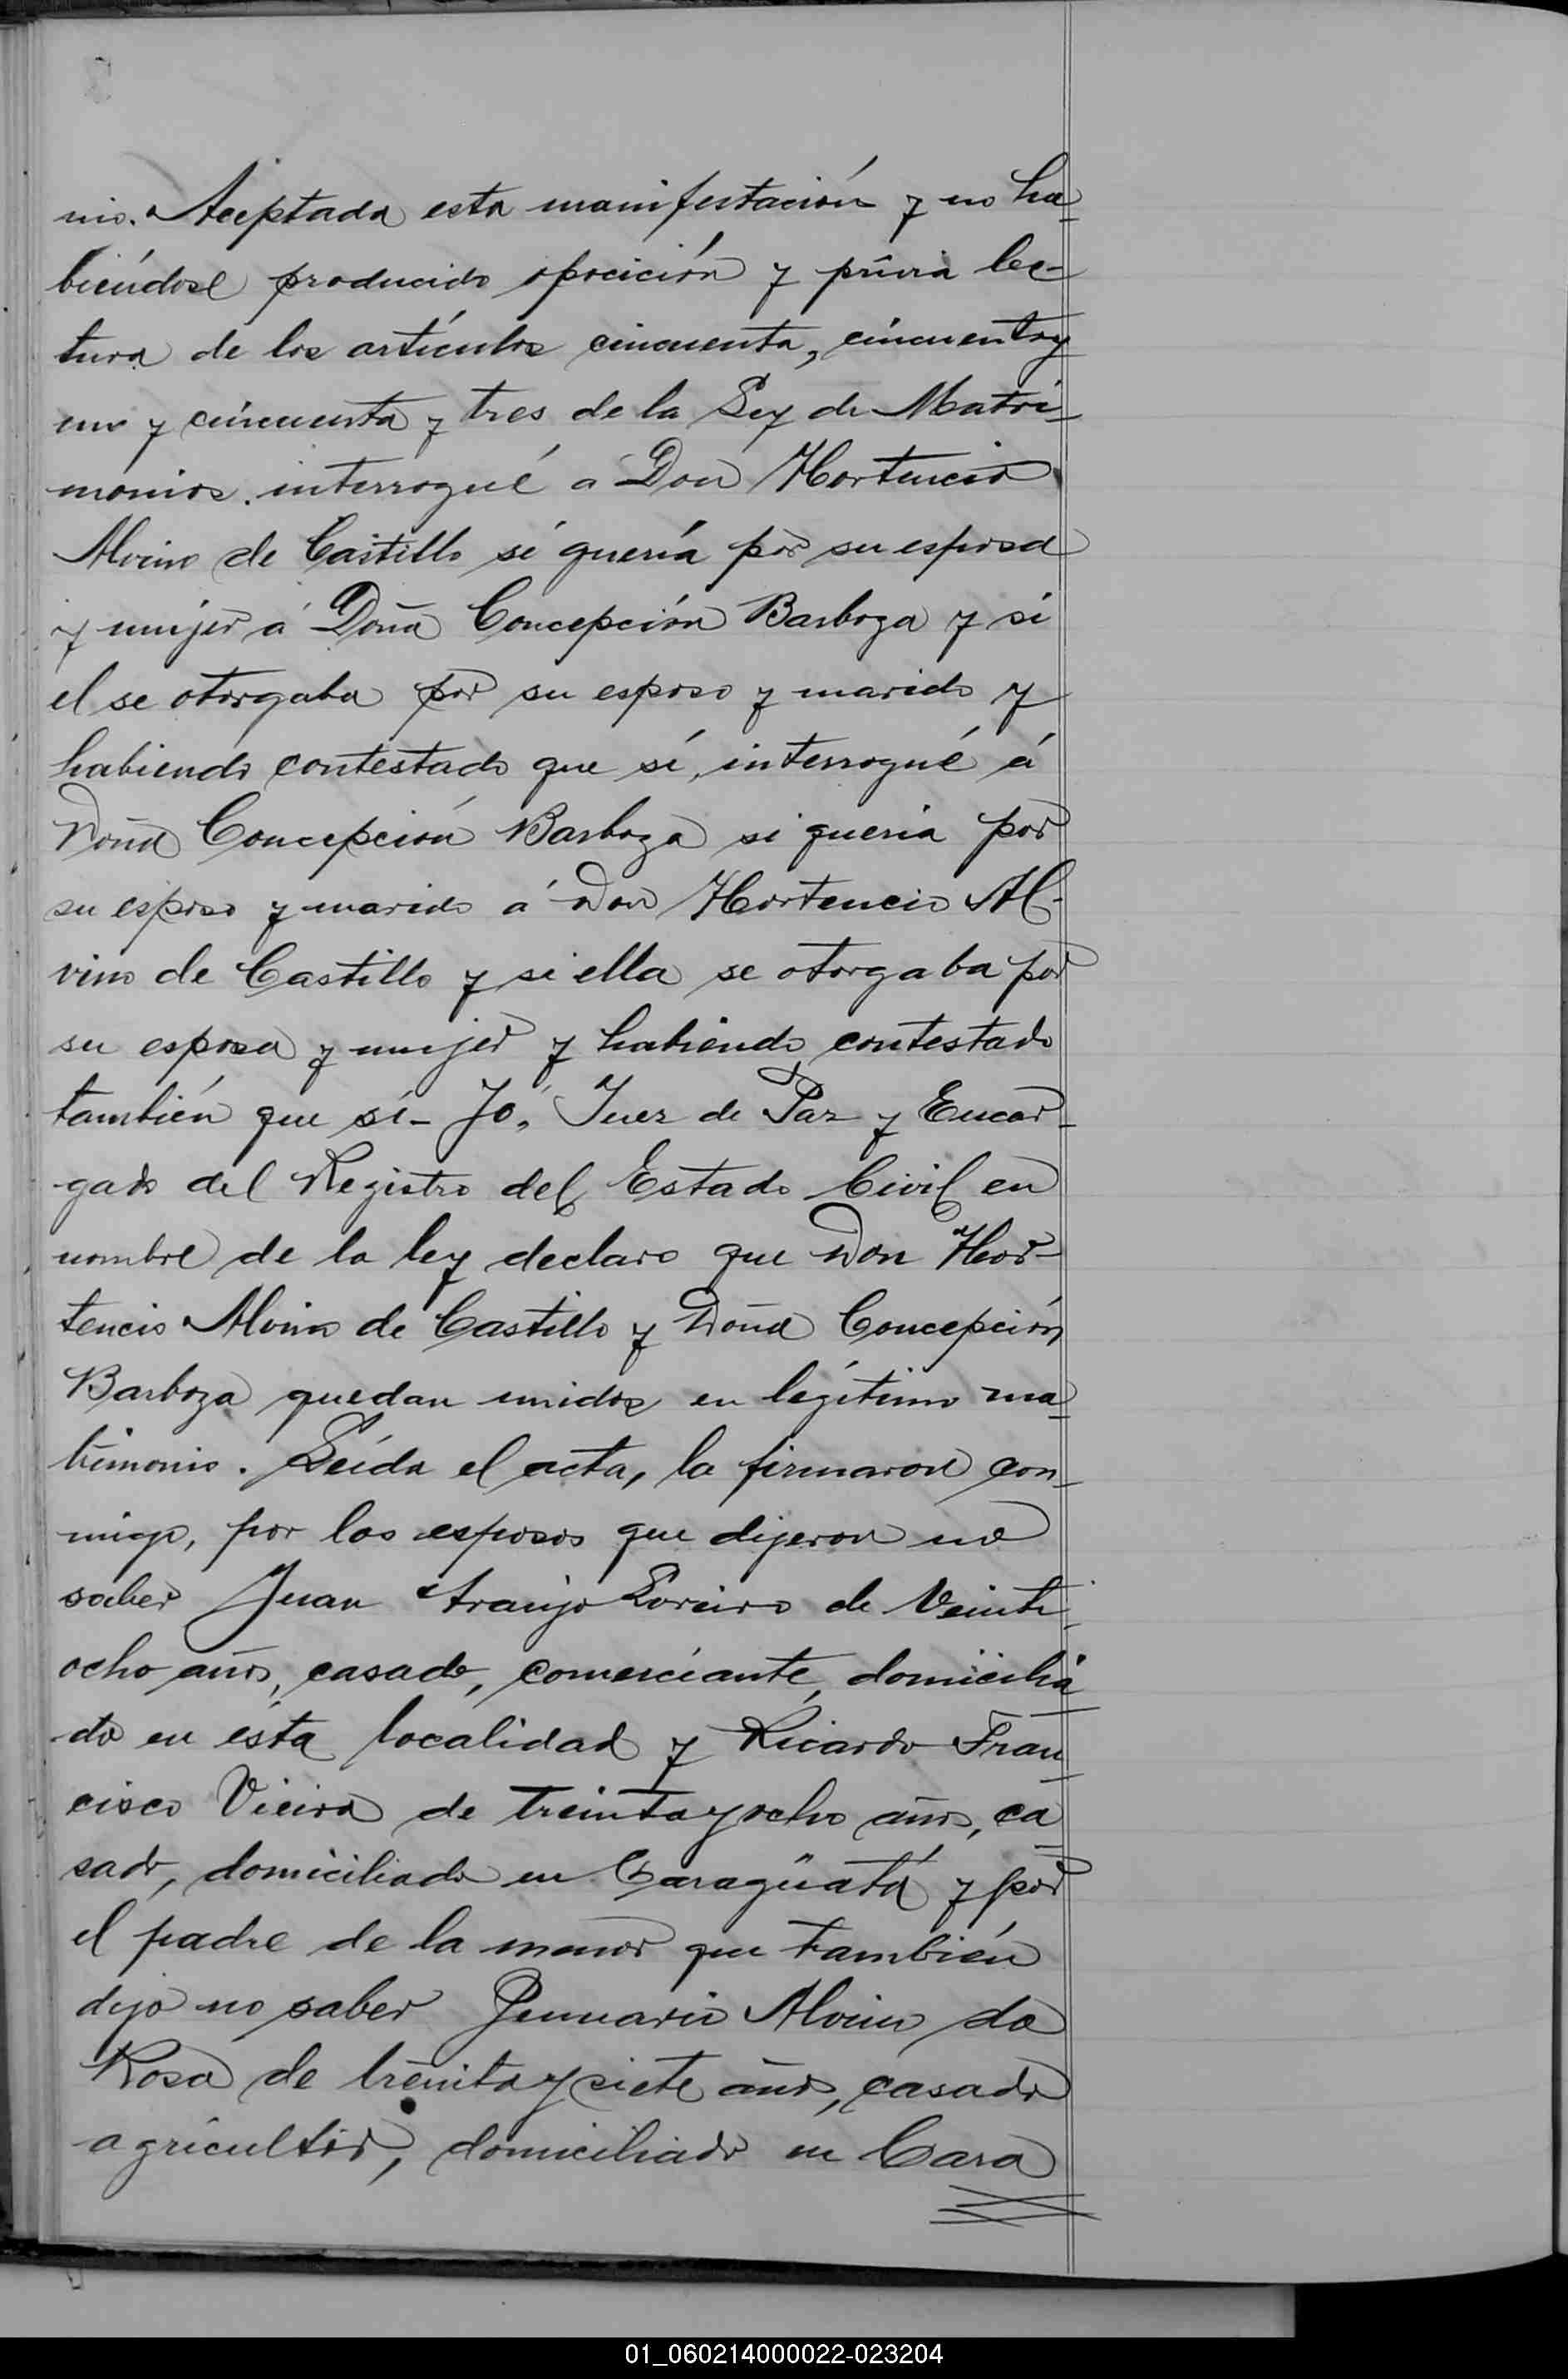 nio. Aceptada esta manifestación y no ha-
biéndose producido oposición y prévia lec-
tura de los artículos cincuenta, cincuenta y
uno y cincuenta y tres de la Ley de Matri-
monios. interrogué a Don Hortencio
Alvino de Castillo si quería por su esposa
y mujer á Doña Concepción Barboza y si
el se otorgaba por su esposo y marido y
habiendo contestado que sí, interrogué á
Doña Concepción Barboza si queria por
su esposo y marido á Don Hortencio Al-
vino de Castillo y si ella se otorgaba por
su esposa y mujer y habiendo contestado
también que sí- Yo, Juez de Paz y Encar-
gado del Registro del Estado Civil en
nombre de la ley declaro que Don Hor-
tencio Alvino de Castillo y Doña Concepción
Barboza quedan unidos en legítimo ma-
trimonio. Leída el acta, la firmaron con-
migo, por los esposos que dijeron no
saber Juan Araujo Loreiro de veinti-
ocho años, casado, comerciante, domicilia-
do en ésta localidad y Ricardo Fran-
cisco Vieira de treinta y ocho años, ca-
sado, domiciliado en Caragüatá y por
el padre de la menor que también
dijo no saber Jennario Alvino da
Rosa de treinta y siete años, casado
agricultor, domiciliado en Cara
01_060214000022-023204